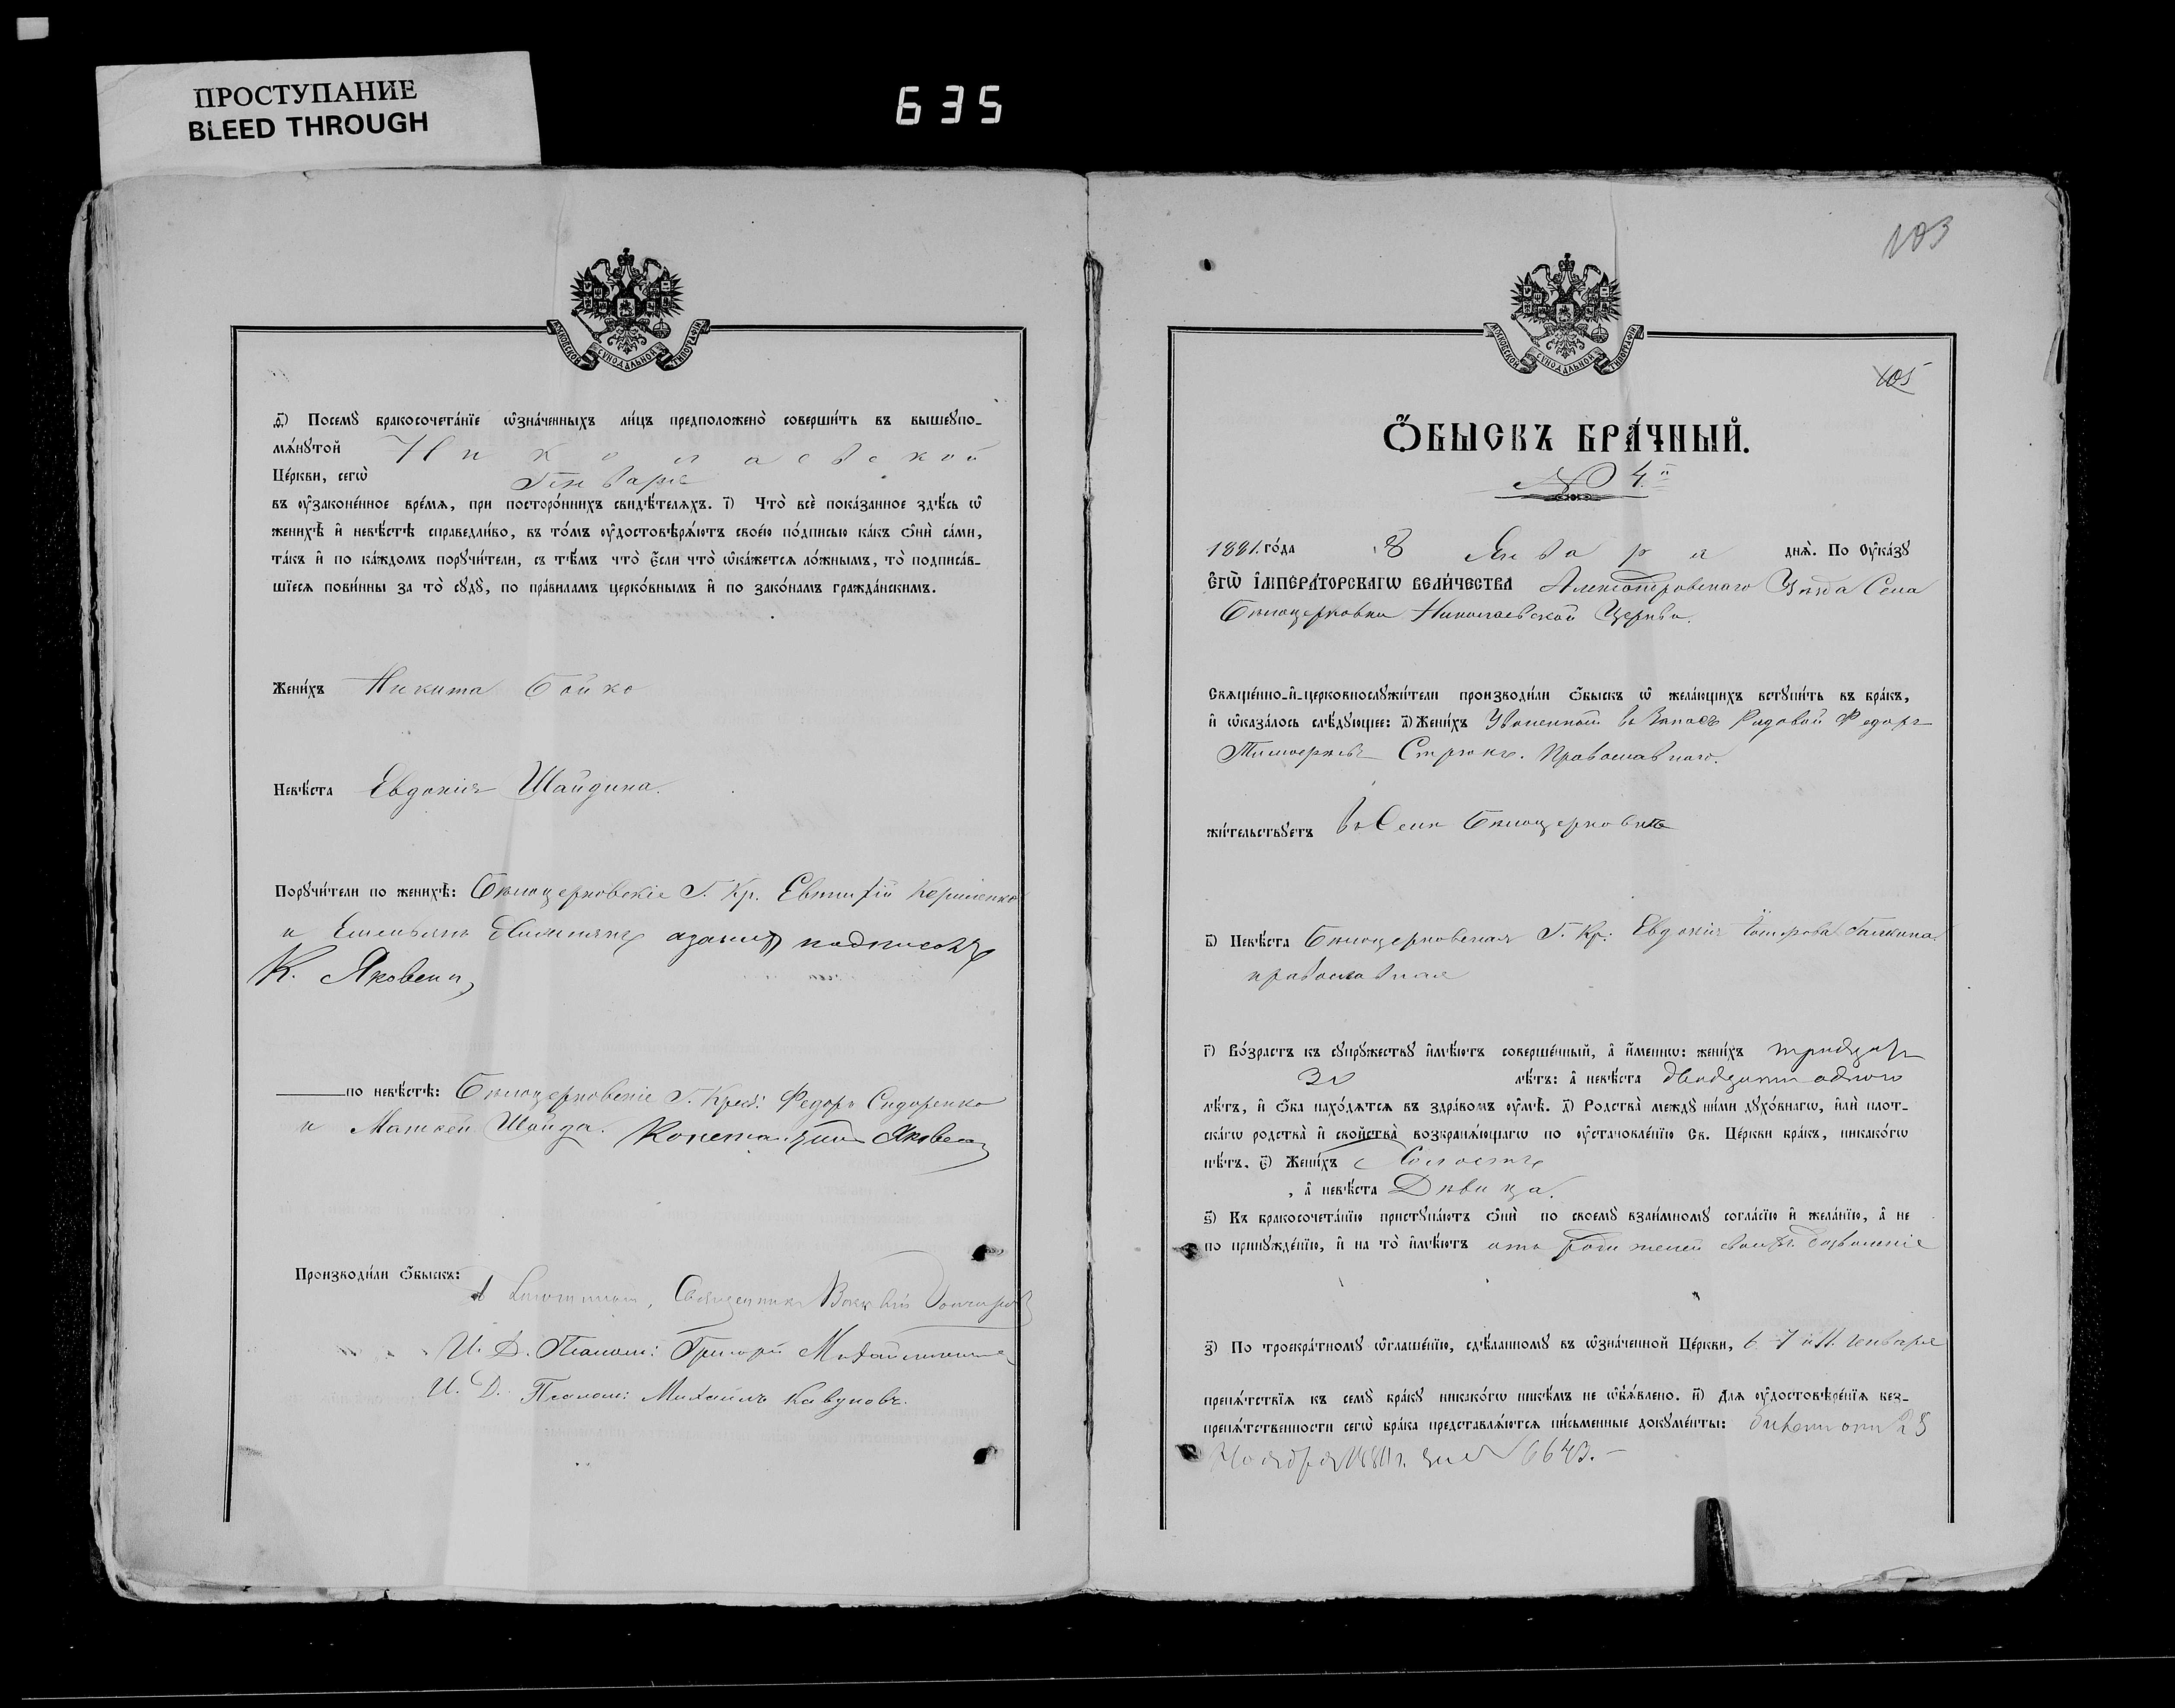 ПРОСТУПАНИЕ
BLEED THROUGH
635
МОСКОВСКОЙ СУНОДАЛЬНОЙ ТИПОГРАФІИ
ѳ҃) Посемꙋ̀ бракосочета́нїе ѡ҆зна́ченныхъ ли́цъ предположено̀ соверши́ть въ вышеꙋпо-
мѧ́нꙋтой Николаевской
Це́ркви, сегѡ̀ Генваря
въ ᲂу҆зако́ненное вре́мѧ, при посторо́ннихъ свидѣ́телѧхъ. і҃) Что̀ всѐ пока́занное здѣ́сь ѡ҆
женихѣ̀ и҆ невѣ́стѣ справедли́во, въ то́мъ ᲂу҆достовѣрѧ́ютъ свое́ю по́дписью ка́къ ѻ҆нѝ са́ми,
та́къ и҆ по ка́ждомъ порꙋчи́тели, съ тѣ́мъ что̀ є҆́сли что̀ ѡ҆ка́жетсѧ ло́жнымъ, то̀ подписа́в-
шїесѧ пови́нны за то̀ сꙋдꙋ̀, по пра́виламъ церко́внымъ и҆ по зако́намъ гражда́нскимъ.
Жени́хъ Никита Бойко
Невѣ́ста Евдокія Шайдина.
Порꙋчи́тели по женихѣ̀: Бѣлоцерковскіе Г. Кр. Евтифій
и Емельянъ
К. Яковенко
по невѣ́стѣ: Бѣлоцерковскіе Г. Крест: Федоръ Сидоренко
и Маткей Шайда. Яковенко
Производи́ли ѻ҆́быскъ:
Священникъ
И. Д. Псалом: Григорій
И. Д. Псалом: Михаилъ Кавуновъ.
103
105
МОСКОВСКОЙ СУНОДАЛЬНОЙ ТИПОГРАФІИ
Ѻ҆́БЫСКЪ БРА́ЧНЫЙ.
№ 4.й
1881. го́да 8 Января днѧ̀. По Оу҆ка́зꙋ
Є҆ГѠ̀ І҆МПЕРА́ТОРСКАГѠ ВЕЛИ́ЧЕСТВА Александровскаго Уѣзда Села
Бѣлоцерковки Николаевской Церкви.
Свѧще́нно-и҆-церковнослꙋжи́тели производи́ли ѻ҆́быскъ ѡ҆ жела́ющихъ встꙋпи́ть въ бра́къ,
и҆ ѡ҆каза́лось слѣ́дꙋющее: а҃) Жени́хъ Уволенный въ запасъ Рядовой Федоръ
Стрюкъ. Православнаго.
жи́тельствꙋетъ въ Селѣ Бѣлоцерковкѣ
в҃) Невѣ́ста Бѣлоцерковская Г. Кр: Евдокія Галкина.
православная
г҃) Во́зрастъ къ сꙋпрꙋ́жествꙋ и҆мѣ́ютъ соверше́нный, а҆ и҆́менно: жени́хъ тридцать
30 лѣ́тъ: а҆ невѣ́ста двадцати одного
лѣ́тъ, и҆ ѻ҆́ба нахо́дѧтсѧ въ здра́вомъ ᲂу҆мѣ̀. д҃) Родства̀ междꙋ̀ ни́ми дꙋхо́внагѡ, и҆лѝ плот-
ска́гѡ родства̀ и҆ свойства̀ возбранѧ́ющагѡ по ᲂу҆становле́нїю Св. Це́ркви бра́къ, никако́гѡ
нѣ́тъ. є҃) Жени́хъ Холостъ
, а҆ невѣ́ста Дѣвица.
ѕ҃) Къ бракосочета́нїю пристꙋпа́ютъ ѻ҆нѝ по своемꙋ̀ взаи́мномꙋ согла́сїю и҆ жела́нїю, а҆ не
по принꙋжде́нїю, и҆ на то̀ и҆мѣ́ютъ отъ родителей своихъ дозволеніе
з҃) По троекра́тномꙋ ѡ҆глаше́нїю, сдѣ́ланномꙋ въ ѡ҆зна́ченной Це́ркви, 6. 7 и 11. Января
препѧ́тствїѧ къ семꙋ̀ бра́кꙋ никако́гѡ никѣ́мъ не ѡ҆б̾ѧ́влено. и҃) Длѧ ᲂу҆достовѣре́нїѧ без-
препѧ́тственности сегѡ̀ бра́ка представлѧ́ютсѧ пи́сьменные докꙋме́нты: билетъ отъ 28
Ноября 1880 г. за № 6643.